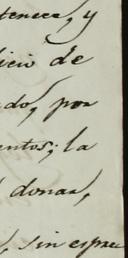 tenece, y
icio de
do, por
entos; la
donar,
, sin espre